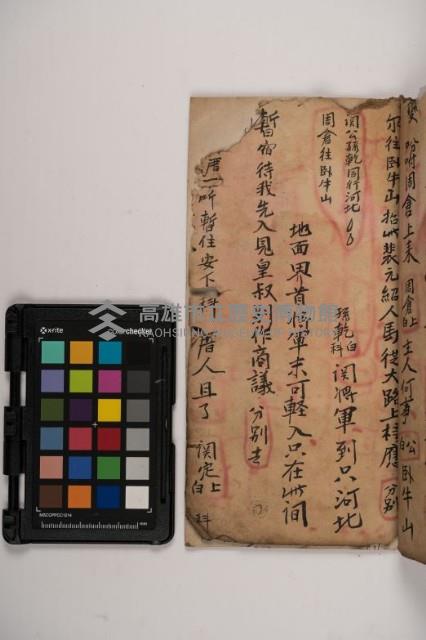 變 吩咐周倉上表 周倉白上 主人何事 公白 臥牛山
尔往臥牛山 袁元紹人馬從大路上接應 分別
関公孫乾同行河北
周倉往臥牛山
孫乾白科 関將軍到只河北
地面界首將軍未可輕入只在此间
暫宿待我先入見皇叔 作商議 分別去
厝一所暫住安下 科 厝人且了 関定上白 科
高雄市立歷史博物館
KAOHSIUNG MUSEUM OF HISTORY
x-rite
colorchecker
MSCCPPCC1214
mm